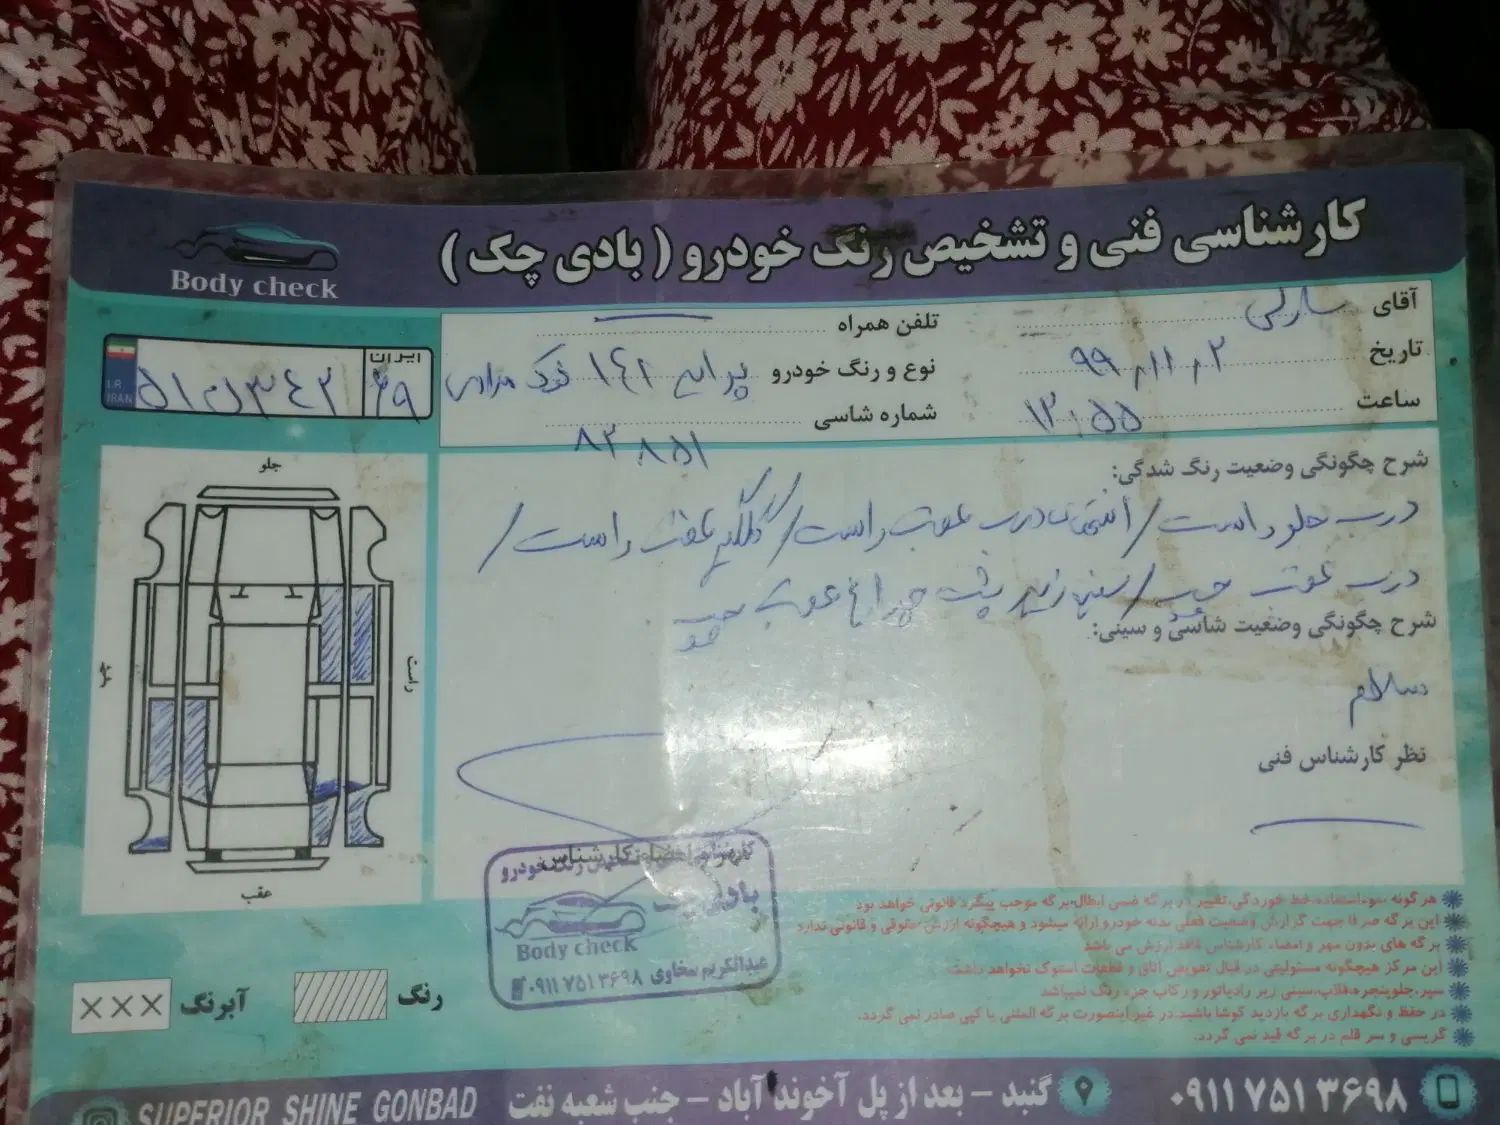 کارشناسی فنی و تشخیص رنگ خودرو ( بادی چک )
Body check
آقای
تلفن همراه
تاریخ ۹۹٫۱۱٫۲
نوع و رنگ خودرو پراید ۱۴۱ نوک مدادی
ساعت ۱۳:۵۵
شماره شاسی ۸۲۸۵۱
ایران
I.R.
IRAN
شرح چگونگی وضعیت رنگ شدگی:
درب جلو راست / انتهای درب عقب راست / گلگیر عقب راست /
درب عقب چپ / سینی زیر پشت چراغ عقب چپ
شرح چگونگی وضعیت شاسی و سینی:
سالم
نظر کارشناس فنی
جلو
راست
چپ
عقب
رنگ
آبرنگ
مهر و امضاء کارشناس
بادی چک
Body check
عبدالکریم سخاوی
۰۹۱۱۷۵۱۳۶۹۸
هر گونه سوءاستفاده، خط خوردگی، تغییر در برگه ضمن ابطال برگه موجب پیگرد قانونی خواهد بود
این برگه صرفا جهت گزارش وضعیت فعلی بدنه خودرو ارائه میشود و هیچگونه ارزش حقوقی و قانونی ندارد
برگه های بدون مهر و امضاء کارشناس فاقد ارزش می باشد
این مرکز هیچگونه مسئولیتی در قبال تعویض اتاق و قطعات استوک نخواهد داشت.
سپر، جلوپنجره، قالپ، سینی زیر رادیاتور و رکاب جزء رنگ نمیباشد
در حفظ و نگهداری برگه بازدید کوشا باشید. در غیر اینصورت برگه المثنی یا کپی صادر نمی گردد.
گریسی و سر قلم در برگه قید نمی گردد.
۰۹۱۱۷۵۱۳۶۹۸
گنبد – بعد از پل آخوند آباد – جنب شعبه نفت
SUPERIOR SHINE GONBAD